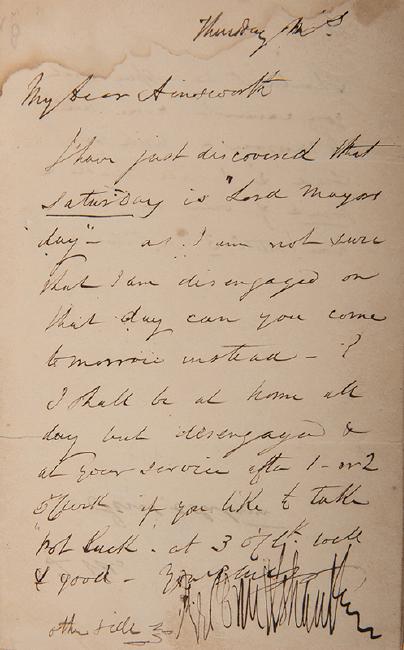 Thursday
My dear Ainsworth
I have just discovered that
Saturday is "Lord Mayors
day" - as I am not sure
that I am disengaged on
that day can you come
tomorrow instead - ?
I shall be at home all
day but disengaged &
at your service after 1 - or 2
o'clock if you like to take
"Pot Luck - at 3 o'clk. well
& good -
Geo Cruikshank
other side